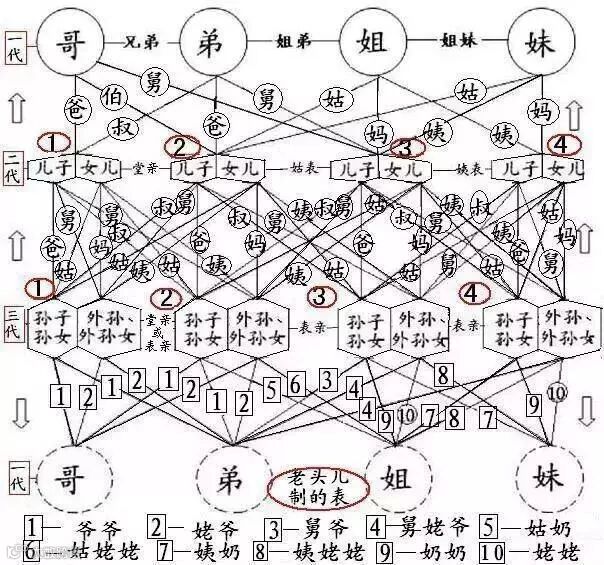 一代 哥 兄弟 弟 姐弟 姐 姐妹 妹
爸 伯 叔 舅 爸 舅 姑 妈 姑 姨 姨 妈
① ② ③ ④
二代 儿子 女儿 堂亲 儿子 女儿 姑表 儿子 女儿 姨表 儿子 女儿
爸 舅 姑 妈 叔 姑 叔 舅 爸 姑 姨 妈 姨 叔 舅 姨 爸 姑 叔 舅 妈 姨 姑 叔 爸 姨 妈 舅
① ② ③ ④
三代 孙子 孙女 外孙、外孙女 堂亲或表亲 孙子 孙女 外孙、外孙女 表亲 孙子 孙女 外孙、外孙女 表亲 孙子 孙女 外孙、外孙女
1 2 1 2 1 1 2 5 6 3 4 4 9 10 8 7 8 7 9 10
一代 哥 弟 老头儿制的表 姐 妹
1—爷爷 2—姥爷 3—舅爷 4—舅姥爷 5—姑奶
6—姑姥姥 7—姨奶 8—姨姥姥 9—奶奶 10—姥姥